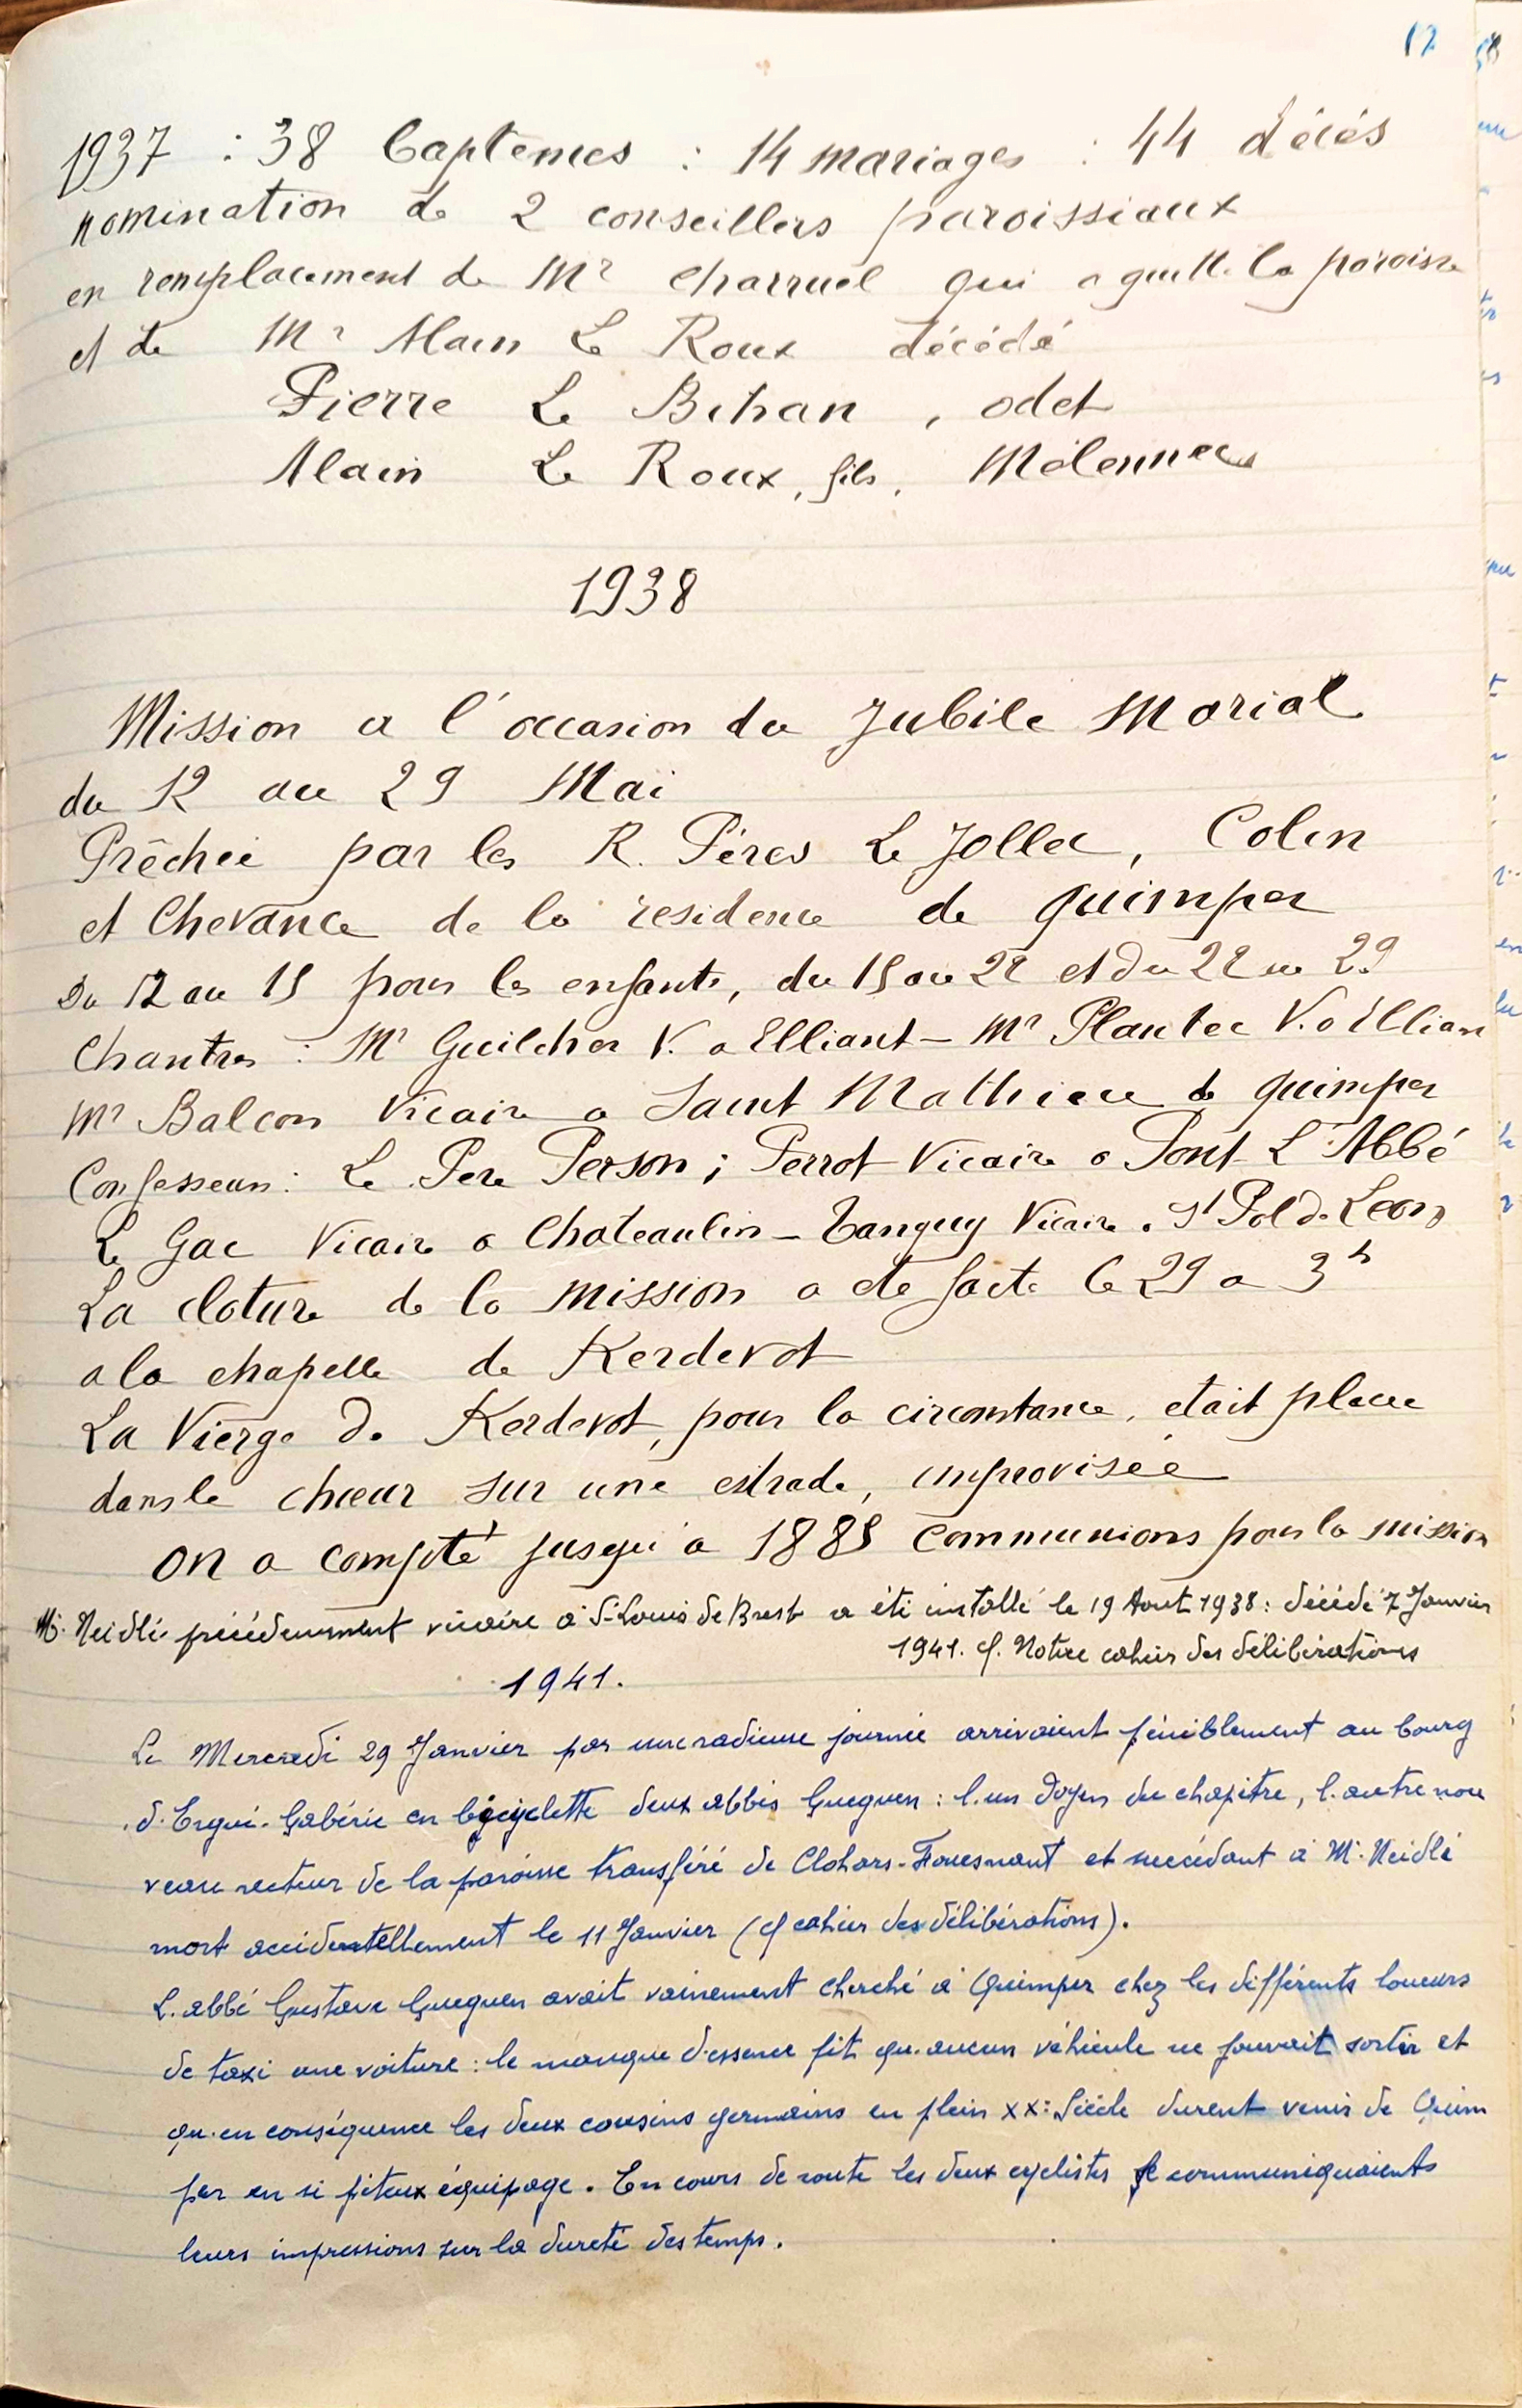 17
1937 : 38 baptemes : 14 mariages : 44 décés
nomination de 2 conseillers paroissiaux
en remplacement de Mr Charruel qui a quitté la paroisse
et de Mr Alain Le Roux décédé
Pierre Le Bihan, odet
Alain Le Roux, fils, Mélennec
1938
Mission a l'occasion du Jubile Marial
du 12 au 29 Mai
Prêchée par les R. Péres Le Jollec, Colin
et Chevance de la residence de quimper
Du 12 au 15 pour les enfants, du 15 au 22 et du 22 au 29
Chantres : Mr Guilcher V. a Elliant - Mr Plantec V. a Elliant
Mr Balcon Vicaire a Saint Mathieu de quimper
Confesseurs : Le Pere Person ; Perrot Vicaire a Pont L'Abbé
Le Gac Vicaire a Chateaulin - Tanguy Vicaire a St Pol de Leon
La cloture de la mission a ete faite le 29 a 3h
a la chapelle de Kerdevot
La Vierge de Kerdevot, pour la circonstance, etait placee
dans le chœur sur une estrade, improvisée
on a compté jusqu'a 1885 communions pour la mission
Mr. Neidlé précédemment vicaire à St-Louis de Brest a été installé le 19 Aout 1938 : décédé 7 Janvier
1941. cf. Notice cahier des délibérations
1941.
Le Mercredi 29 Janvier par une radieuse journée arrivaient péniblement au bourg
d'Ergué-Gabéric en bicyclette deux abbés Gueguen : l'un doyen du chapitre, l'autre nou
veau recteur de la paroisse transféré de Clohars-Fouesnant et succédant à Mr. Neidlé
mort accidentellement le 11 Janvier (cf cahier des délibérations).
L'abbé Gustave Gueguen avait vainement cherché à Quimper chez les différents loueurs
de taxi une voiture : le manque d'essence fit qu'aucun véhicule ne pouvait sortir et
qu'en conséquence les deux cousins germains en plein XXe Siècle durent venir de Quim
per en si piteux équipage. En cours de route les deux cyclistes se communiquaients
leurs impressions sur la dureté des temps.